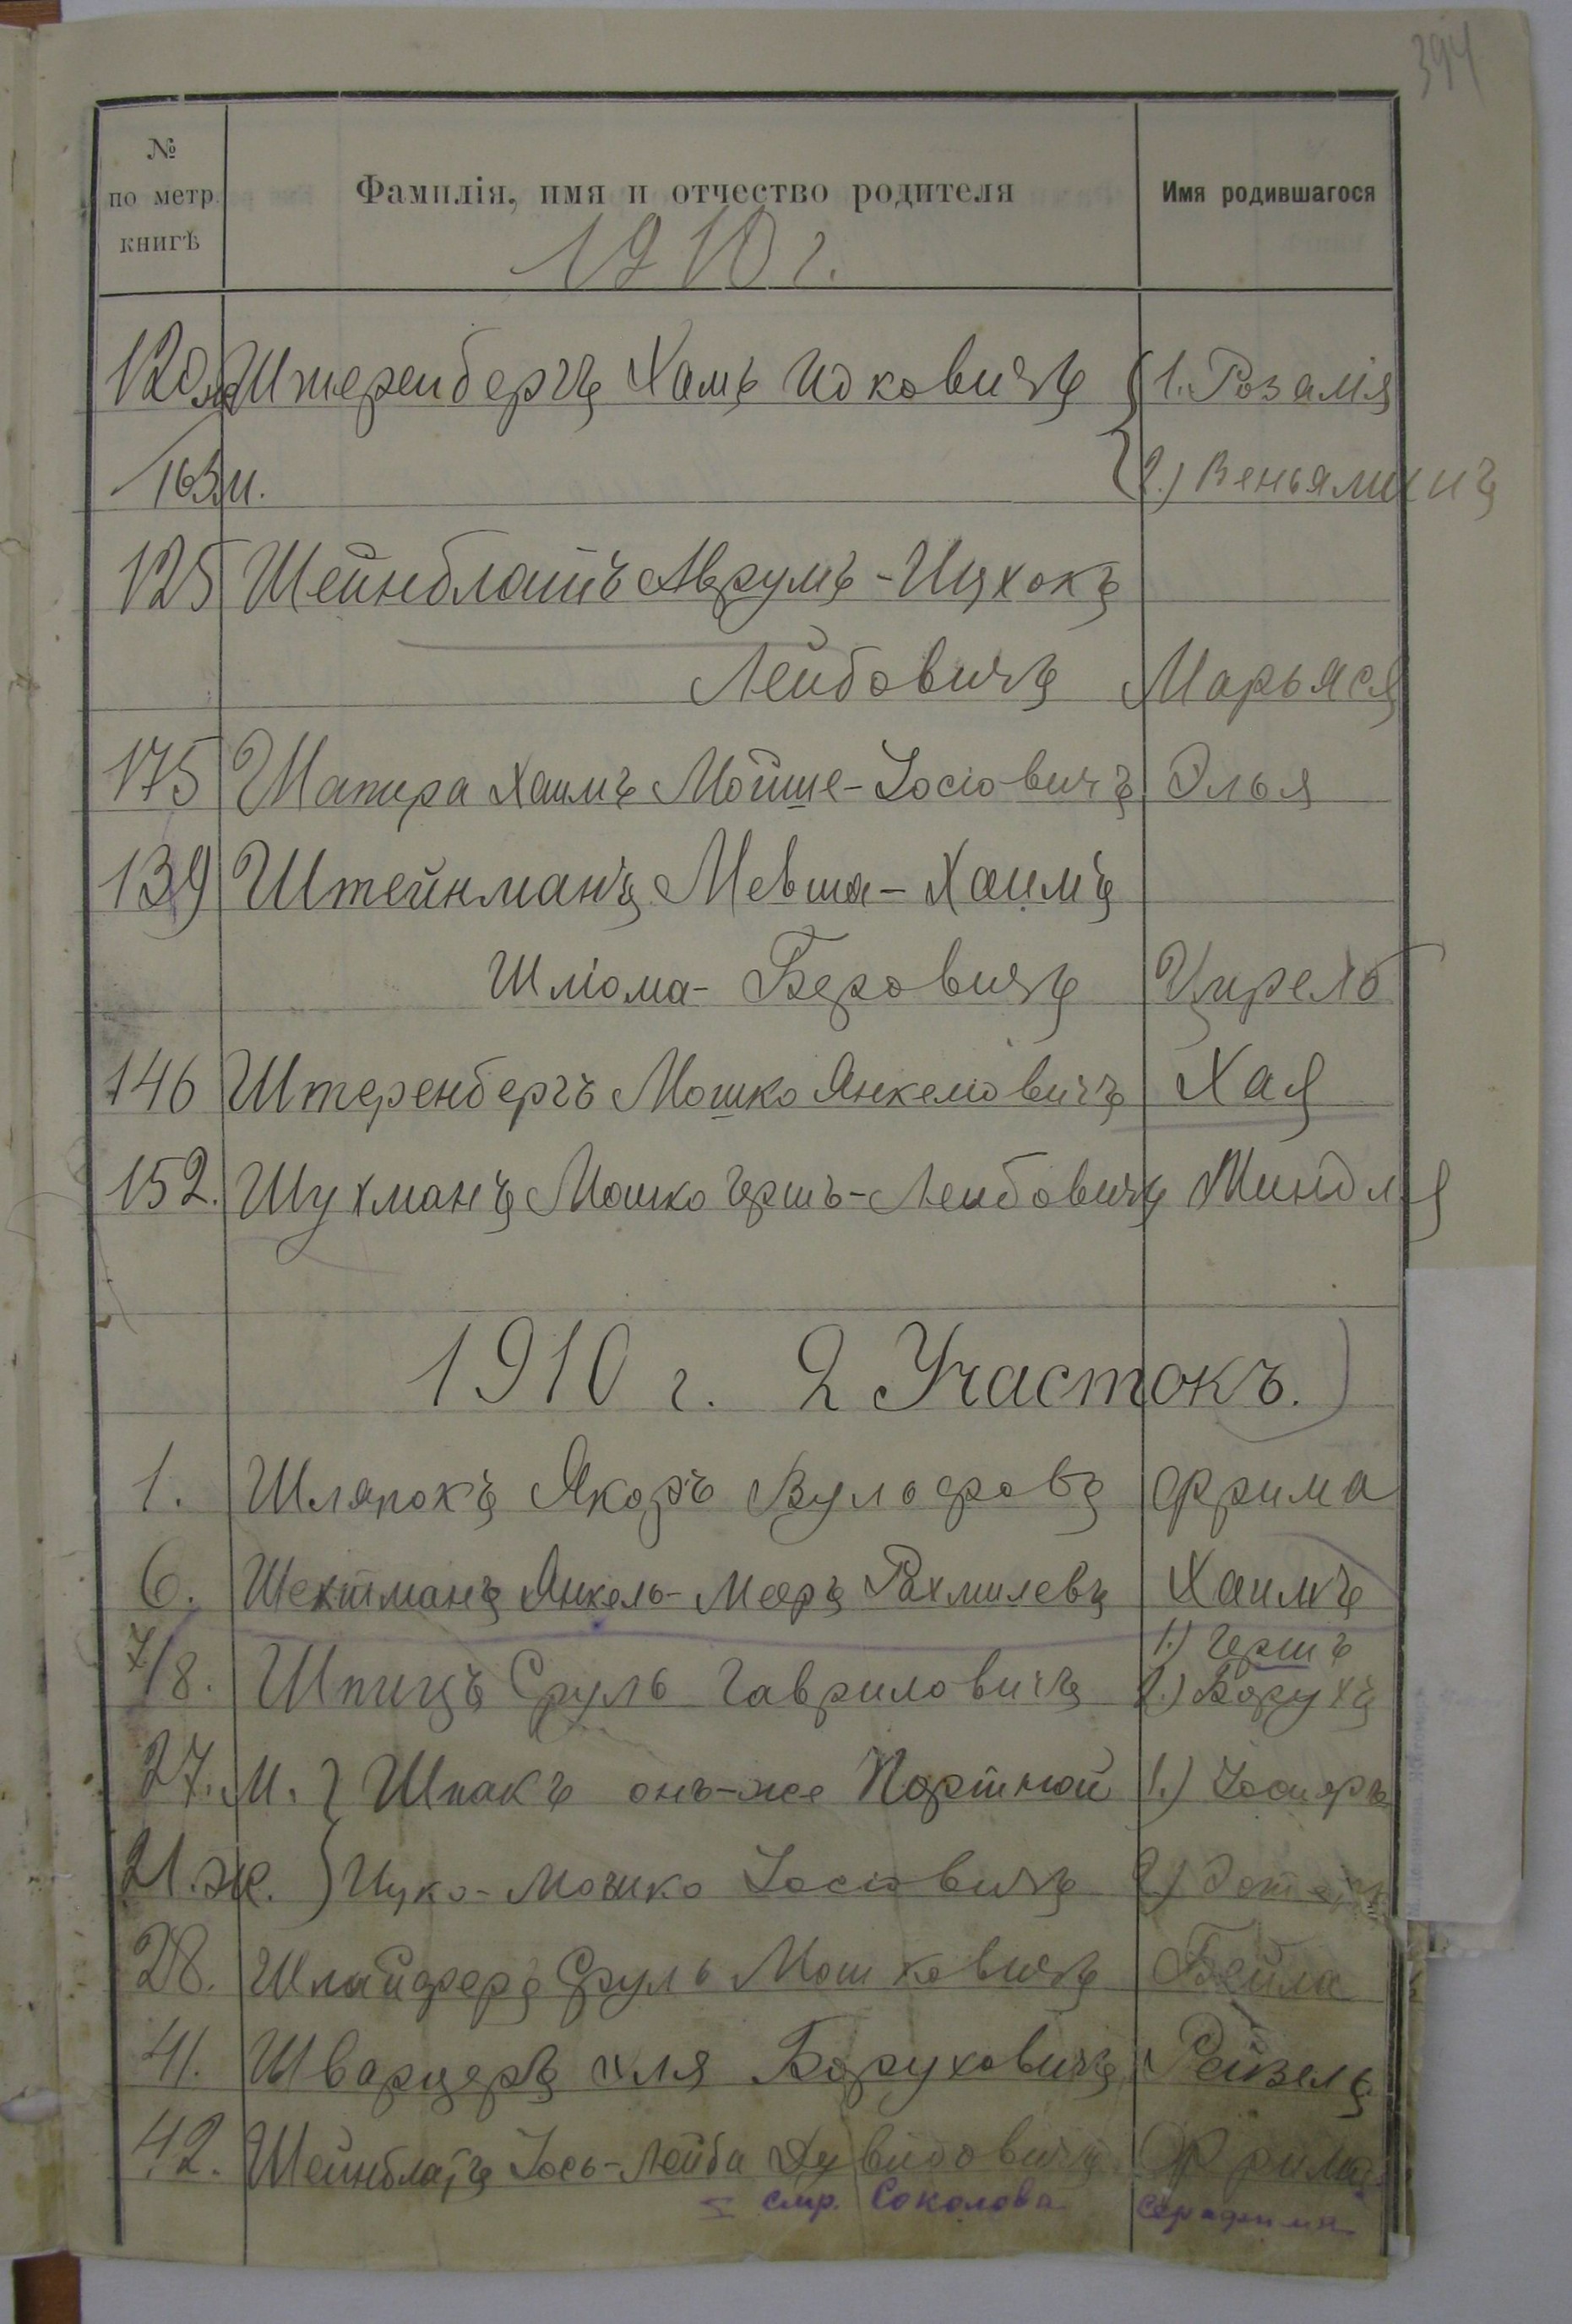 394
№ по метр. книгѣ Фамилія, имя и отчество родителя Имя родившагося
1910 г.
120 ж Штеренбергъ Хаимъ Ицковичъ 1. Розалія
163 м. 2.) Веньяминъ
125 Шейнблатъ Аврумъ-Ицхокъ
Лейбовичъ Марьяся
175 Шапира Хаимъ Мойше-Іосіовичъ Элья
139 Штейнманъ Мевша-Хаимъ
Шліома-Беровичъ Цирель
146 Штеренбергъ Мошко Янкеліовичъ Хая
152. Шухманъ Мошко Гершъ-Лейбовичъ Миндля
1910 г. 2 Участокъ.
1. Шляпокъ Якоръ Вульфовъ Фрима
6. Шехтманъ Янкель-Мееръ Рахмилевъ Хаимъ
1.) Гершъ
7/8. Шпицъ Сруль Гавриловичъ 2.) Борухъ
27. м. Шпакъ онъ-же Портной 1.)
21. ж. Ицко-Мошко Іосіовичъ 2.)
28. Шлайферъ Сруль Мошковичъ Бейла
41. Шварцеръ Иля Боруховичъ Рейзель
42. Шейнблатъ Іось-Лейба Дувидовичъ Фрима
стр. Соколова Серафима